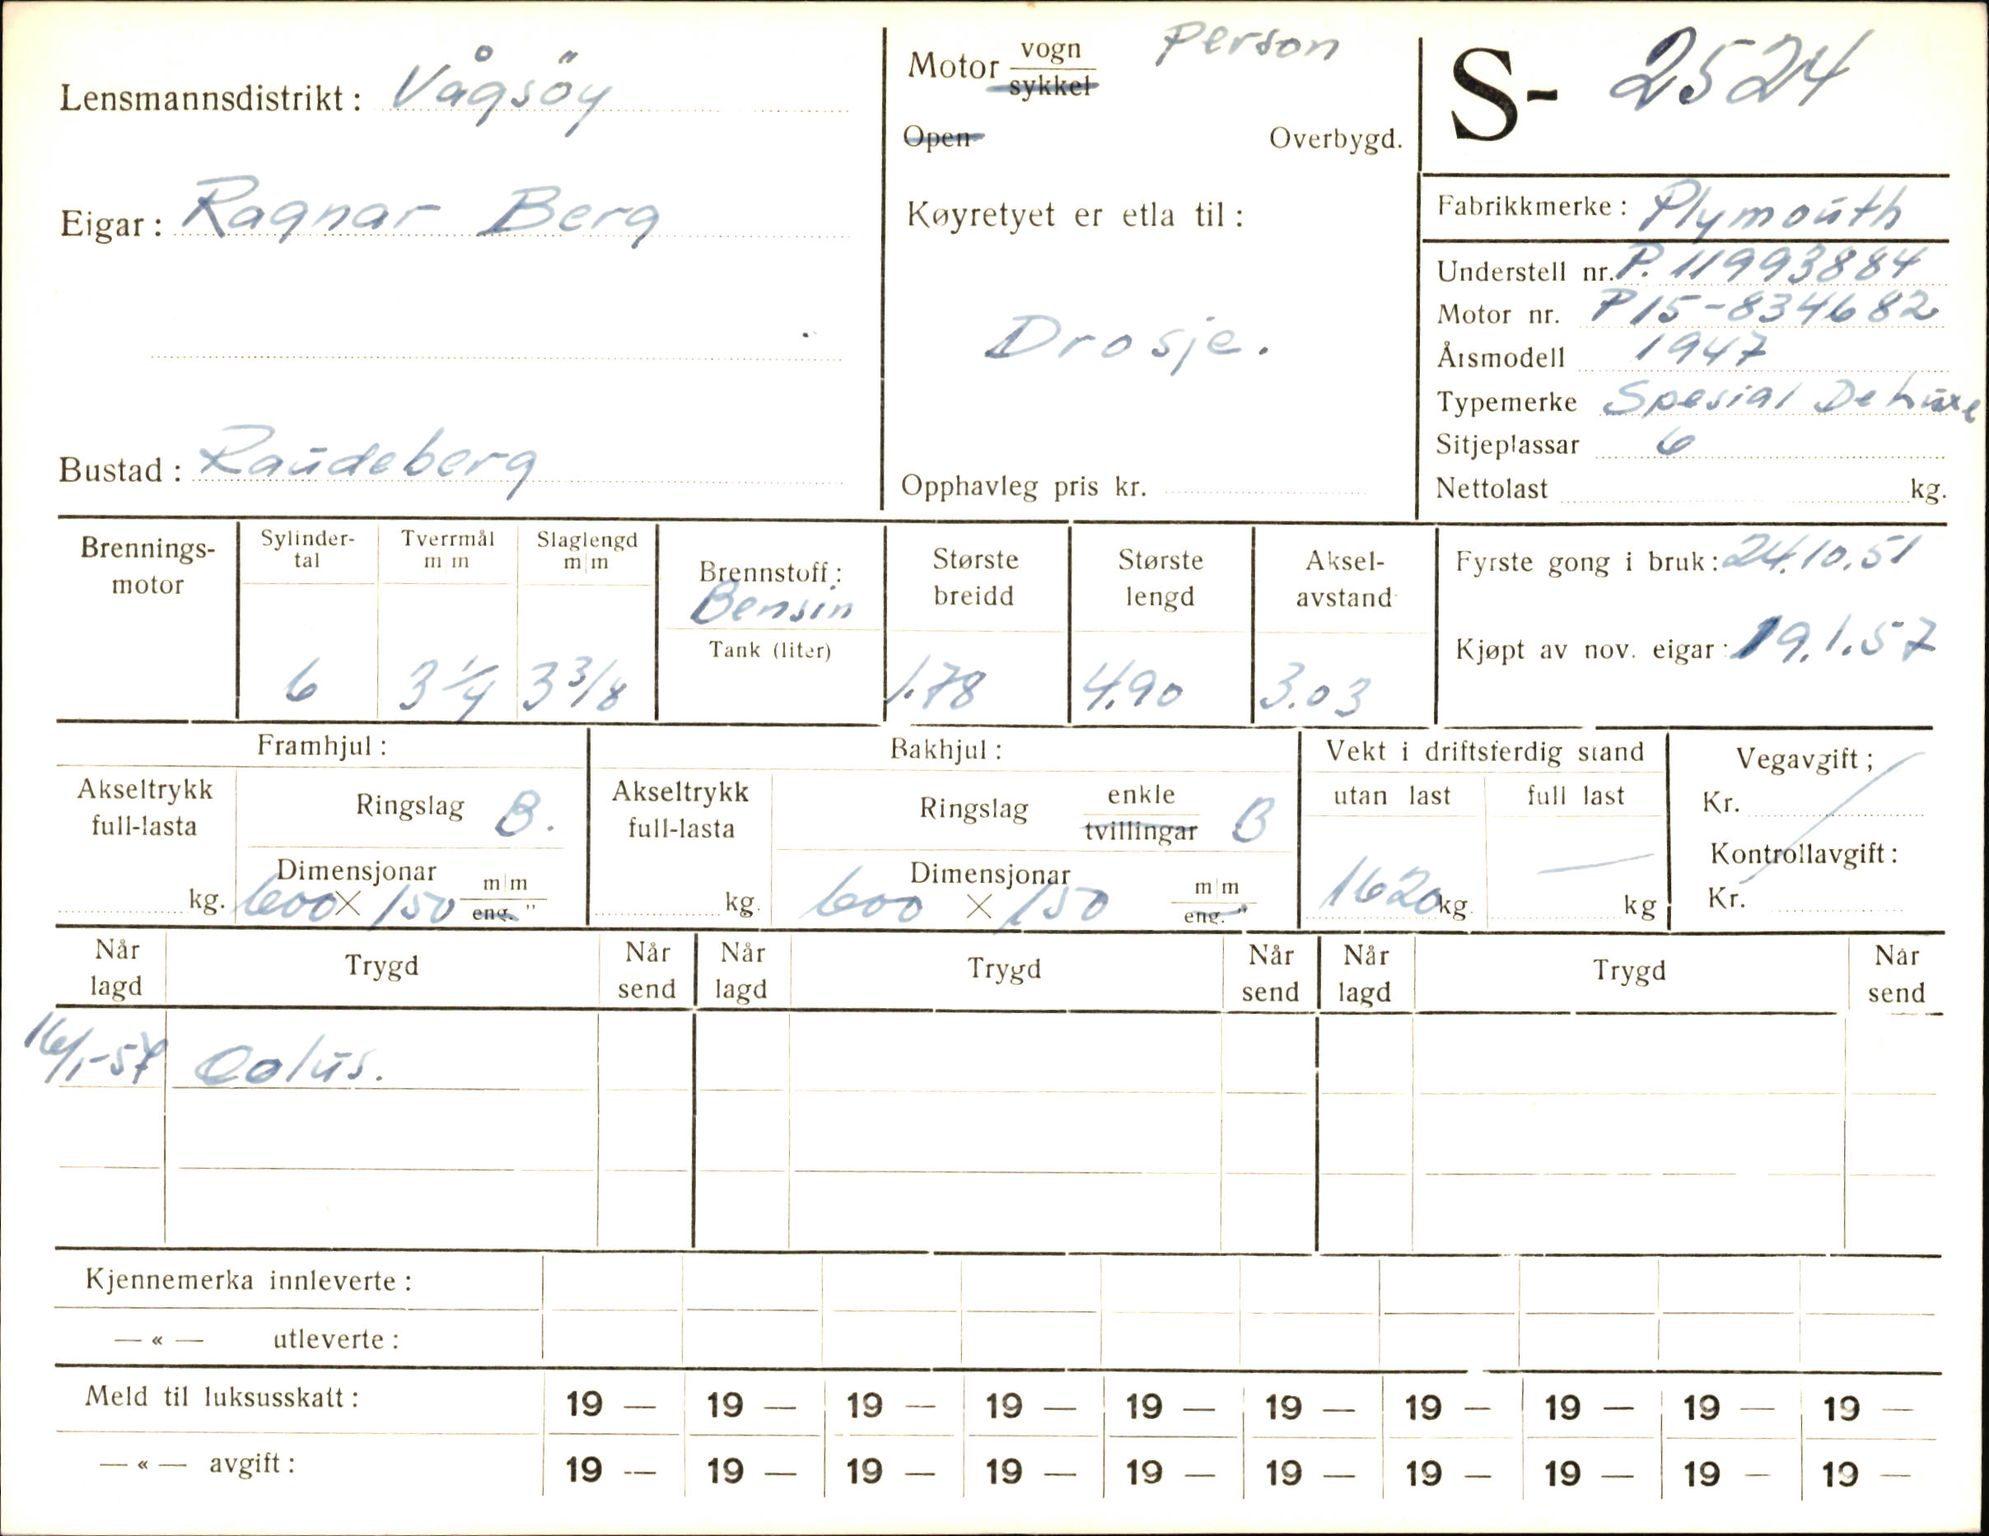 Lensmannsdistrikt: Vågsöy
Eigar: Ragnar Berg
Bustad: Raudeberg
Motor vogn
sykkel Person
Open Overbygd.
Køyretyet er etla til:
Drosje.
Opphavleg pris kr.
S- 2524
Fabrikkmerke: Plymouth
Understell nr. P. 11993884
Motor nr. P15-834682
Årsmodell 1947
Typemerke Spesial De Luxe
Sitjeplassar 6
Nettolast kg.
Brennings-
motor
Sylinder-
tal
6
Tverrmål
m m
3 1/4
Slaglengd
m|m
3 3/8
Brennstoff:
Bensin
Tank (liter)
Største
breidd
1.78
Største
lengd
4.90
Aksel-
avstand
3.03
Fyrste gong i bruk: 24.10.51
Kjøpt av nov. eigar: 19.1.57
Framhjul:
Akseltrykk
full-lasta
kg.
Ringslag B.
Dimensjonar
600 X 150 m|m
eng. "
Bakhjul:
Akseltrykk
full-lasta
kg.
Ringslag enkle
tvillingar B
Dimensjonar
600 X 150 m|m
eng. "
Vekt i driftsferdig stand
utan last full last
1620 kg. — kg
Vegavgift;
Kr.
Kontrollavgift:
Kr.
Når
lagd Trygd Når
send Når
lagd Trygd Når
send Når
lagd Trygd Når
send
16/1-57 Polus.
Kjennemerka innleverte:
— « — utleverte:
Meld til luksusskatt: 19 — 19 — 19 — 19 — 19 — 19 — 19 — 19 — 19 — 19 —
— « — avgift: 19 — 19 — 19 — 19 — 19 — 19 — 19 — 19 — 19 — 19 —